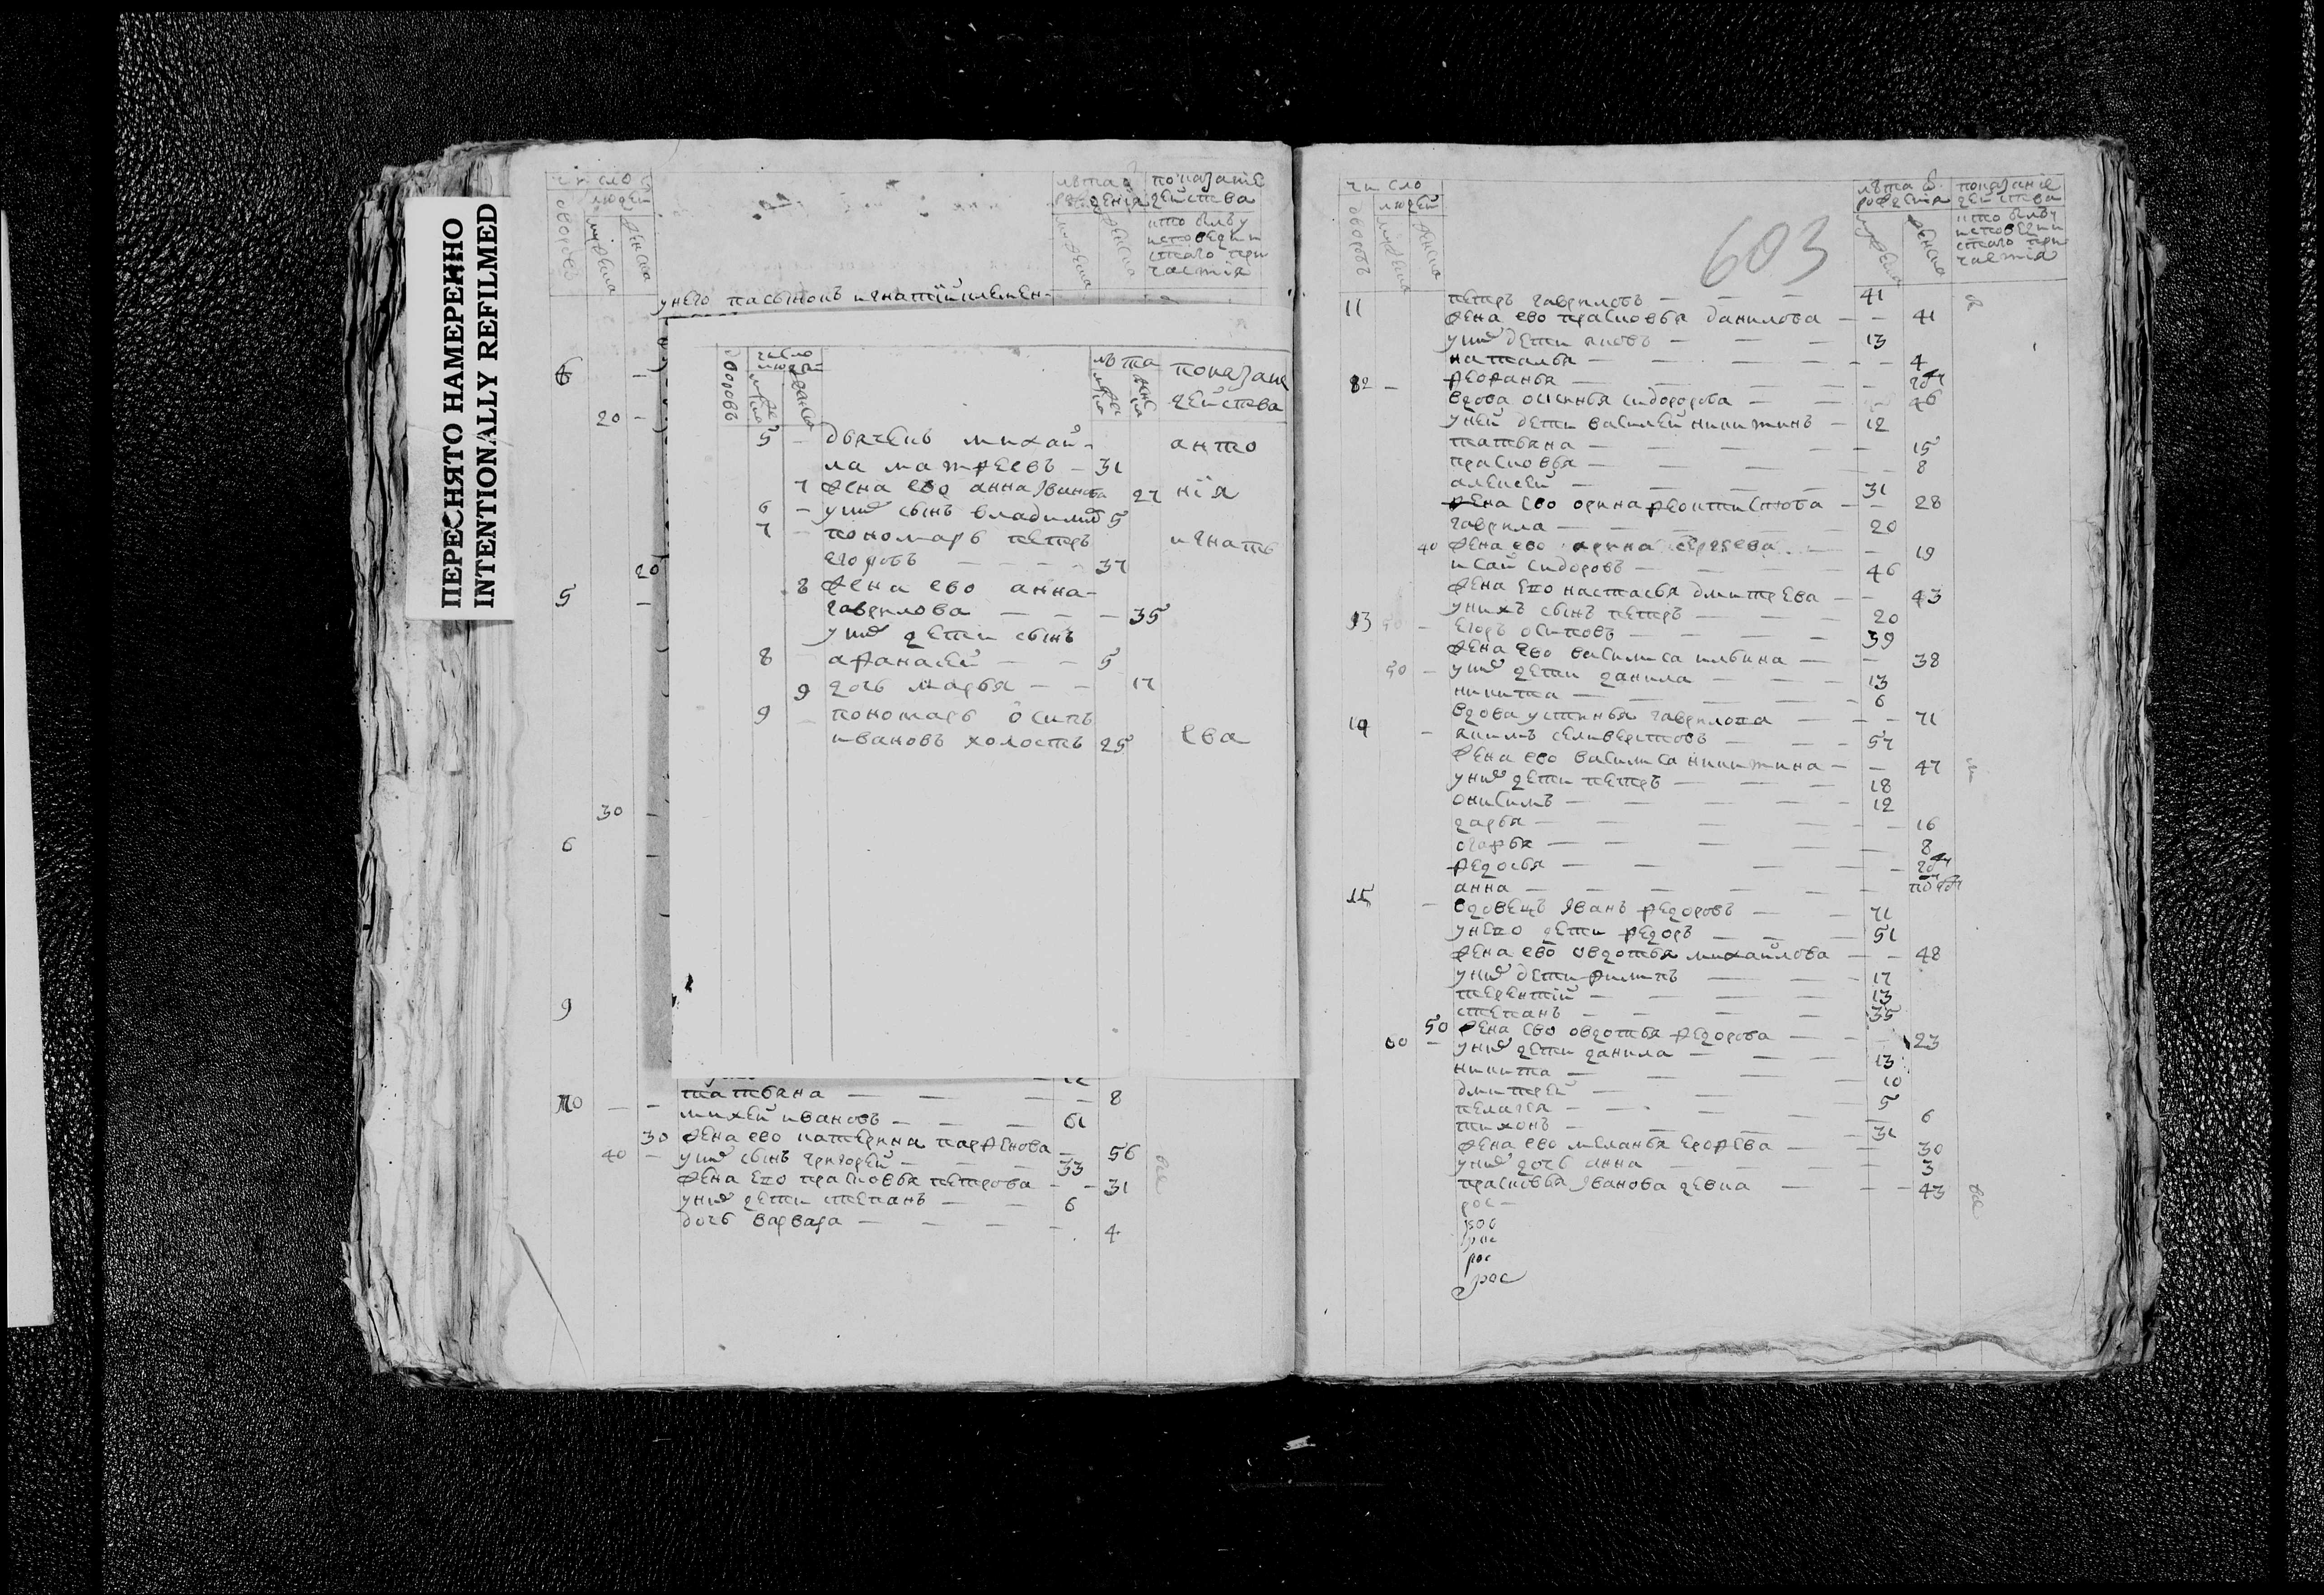 ПЕРЕСНЯТО НАМЕРЕННО
INTENTIONALLY REFILMED
число
людей
дворовъ
мужеска
женска
лѣта
рождения
показание
действа
кто былъ у
исповеди и
святаго при
частия
у него пасынокъ игнатий клемен-
6
20
20
5
30
6
9
дворовъ
число
людей
лѣта
показание
действа
5 – дьячекъ михай-
ла матфеевъ – 31
анто
7 жена ево анна иванова 27
нїя
6 – у них сынъ владимиръ 5
7 – пономарь петръ
егоровъ – 37
игнать
8 жена ево анна
гаврилова – 35
у них дети сынъ
8 афанасей – 5
9 дочь марья – 17
9 пономарь осипъ
ивановъ холостъ 25
ева
12
татьяна – 8
10 – михей ивановъ – 61
30 жена ево катерина парфенова – 56
40 – у них сынъ григорей – 33
жена ево прасковья петрова – 31
у них дети степанъ – 6
дочь варвара – 4
все
число
людей
дворовъ
мужеска
женска
603
лѣта
рождения
мужеска
женска
показание
действа
кто былъ у
исповеди и
святаго при
частия
11 петръ гавриловъ – 41
жена ево прасковья данилова – 41
у них дети яковъ – 13
наталья – 4
феофанья – год
12 – вдова оксинья сидорова – 46
у ней дети василей никитинъ – 12
татьяна – 15
прасковья – 8
алексей – 31
жена ево орина феоктистова – 28
гаврила – 20
40 жена ево арина сергеева – 19
исай сидоровъ – 46
жена ево настасья дмитрева – 43
у нихъ сынъ петръ – 20
13 – егоръ осиповъ – 39
жена ево василиса ильина – 38
50 – у них дети данила – 13
никита – 6
вдова устинья гаврилова – 71
14 – якимъ селиверстовъ – 57
жена ево василиса никитина – 47
у них дети петръ – 18
онисимъ – 12
дарья – 16
огафья – 8
федосья – год
анна – пол год
15 – вдовецъ иванъ федоровъ – 71
у него дети федоръ – 51
жена ево овдотья михайлова – 48
у них дети филипъ – 17
терентий – 13
степанъ – 35
50 жена ево овдотья федорова – 23
60 – у них дети данила – 13
никита – 10
дмитрей – 5
пелагея – 6
тихонъ – 31
жена ево меланья ерофева – 30
у них дочь анна – 3
прасковья иванова девка – 43
все
рос
рос
рос
рос
рос